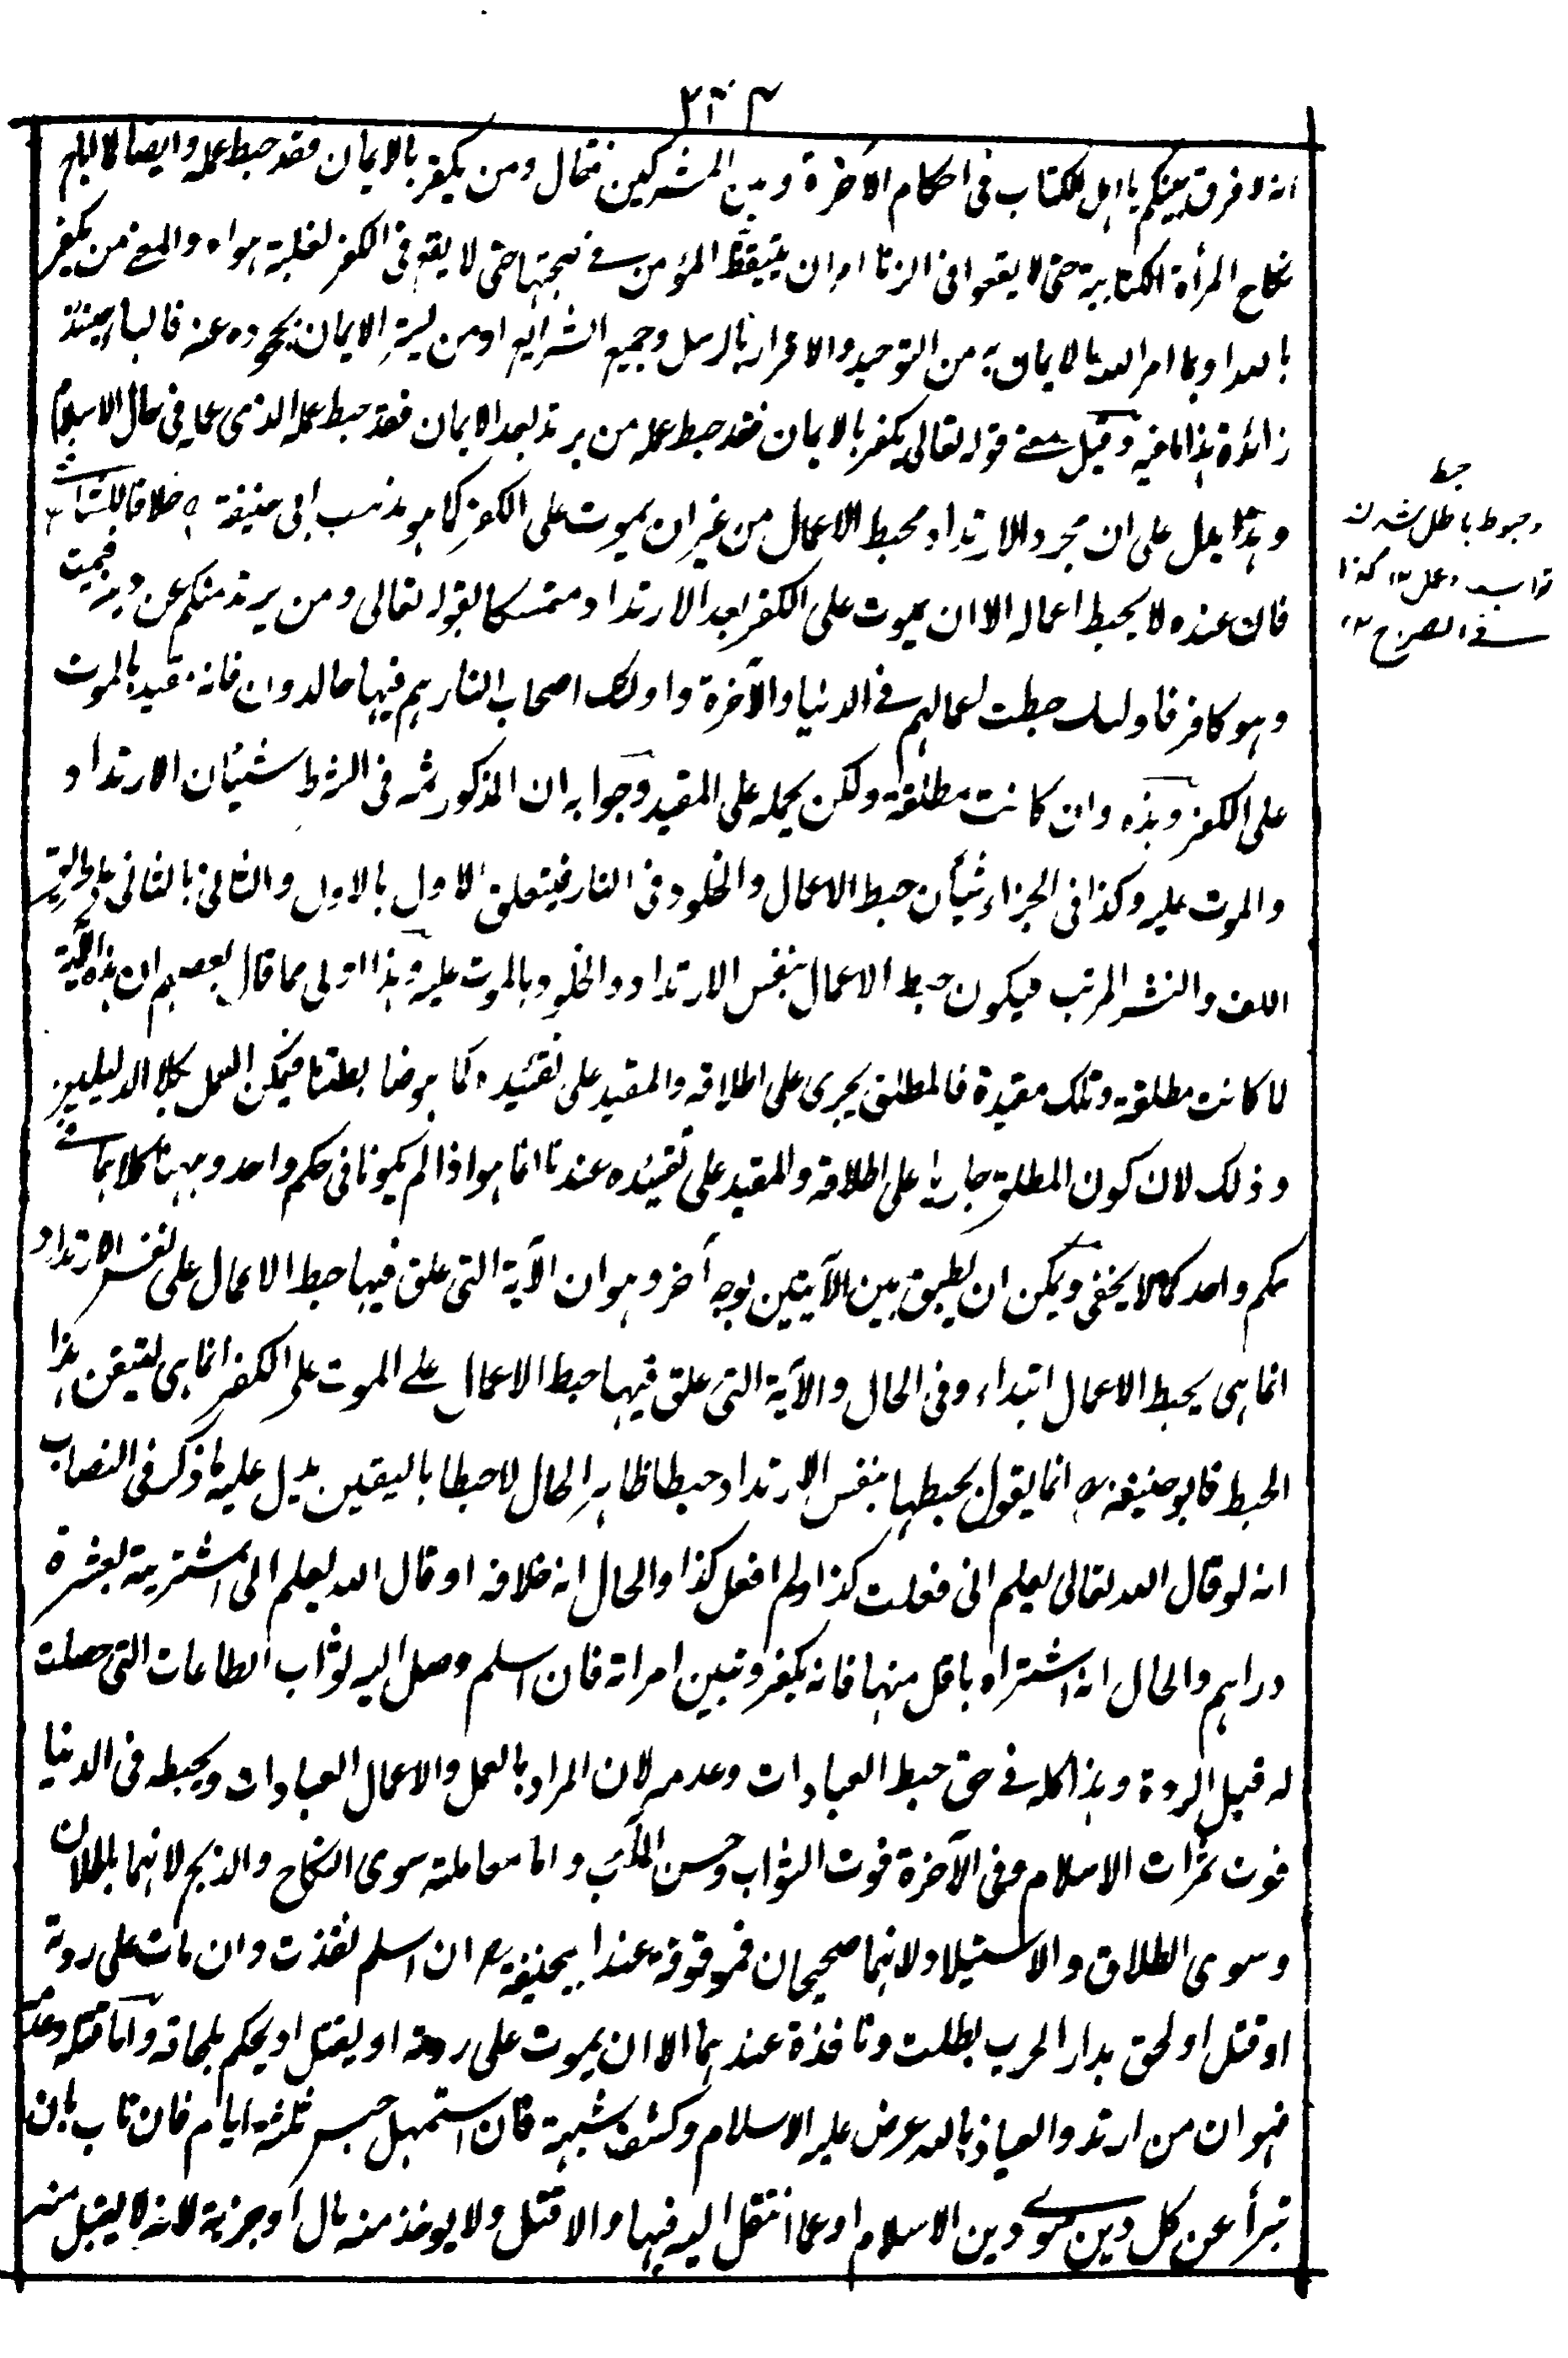 انه لا فرق بينكم يا اهل الكتاب فى احكام الآخرة وبين المشركين فقال ومن يكفر بالايمان فقد حبط عمله وايضا لما اباح
نكاح المرأة الكتابية حتى لا يقعوا فى الزنا امر ان يتيقظ المؤمن فى صحبتها حتى لا يقع فى الكفر لغلبة هواه والمعنى من يكفر
بالله او بما امر الله بالايمان به من التوحيد والاقرار بالرسل وجميع الشرايع او من يستر الايمان بجحوده عنه فالباء حينئذ
زائدة هذا ما فيه وقيل معنى قوله تعالى يكفر بالايمان فقد حبط عمله من يرتد بعد الايمان فقد حبط عمله الذى عمله فى حال الاسلام
وهذا يدل على ان مجرد الارتداد محبط الاعمال من غير ان يموت على الكفر كما هو مذهب ابى حنيفة رح خلافا للشافعى رح
فان عنده لا يحبط اعماله الا ان يموت على الكفر بعد الارتداد متمسكا بقوله تعالى ومن يرتدد منكم عن دينه فيمت
وهو كافر فاولئك حبطت اعمالهم فى الدنيا والآخرة واولئك اصحاب النار هم فيها خالدون فانه مقيد بالموت
على الكفر وهذه وان كانت مطلقة ولكن يحمله على المقيد وجوابه ان المذكور ثمه فى الشرط شيئان الارتداد
والموت عليه وكذا فى الجزاء شيأن حبط الاعمال والخلود فى النار فيتعلق الاول بالاول والثانى بالثانى على طريق
اللف والنشر المرتب فيكون حبط الاعمال بنفس الارتداد والخلود بالموت عليه وهذا اولى مما قال بعضهم ان هذه الآية
لما كانت مطلقة وتلك مقيدة فالمطلق يجرى على اطلاقه والمقيد على تقئيده كما هو ضابطتنا فيمكن العمل بكلا الدليلين
وذلك لان كون المطلق جاريا على اطلاقه والمقيد على تقئيده عندنا انما هو اذا لم يكونا فى حكم واحد وههنا كلاهما فى
حكم واحد كما لا يخفى ويمكن ان يطبق بين الآيتين بوجه آخر وهو ان الآية التى علق فيها حبط الاعمال على نفس الارتداد
انما هى يحبط الاعمال ابتداء وفى الحال والآية التى علق فيها حبط الاعمال على الموت على الكفر انما هى لتيقن هذا
الحبط فابو حنيفة رح انما يقول بحبطها بنفس الارتداد حبطا ظاهر الحال لا حبطا باليقين يدل عليه ما ذكر فى النصاب
انه لو قال الله تعالى يعلم انى فعلت كذا ولم افعل كذا والحال انه خلافه او قال الله يعلم انى اشتريته بعشرة
دراهم والحال انه اشتراه باقل منها فانه يكفر وتبين امراته فان اسلم وصل اليه ثواب الطاعات التى حصلت
له قبل الردة وهذا كله فى حق حبط العبادات وعدمه لان المراد بالعمل والاعمال العبادات ويحبطه فى الدنيا
فوت ثمرات الاسلام وفى الآخرة فوت الثواب وحسن المآب واما معاملته سوى النكاح والذبح لانهما باطلان
وسوى الطلاق والاستيلاد لانهما صحيحان فموقوفة عند ابيحنيفة رح ان اسلم نفذت وان مات على ردته
او قتل او لحق بدار الحرب بطلت ونافذة عندهما الا ان يموت على ردته او يقتل او يحكم بلحاقه واما قتله وعدمه
فهو ان من ارتد والعياذ بالله عرض عليه الاسلام وكشف شبهته فان استمهل حبس ثلثة ايام فان تاب بان
تبرأ عن كل دين سوى دين الاسلام او عما انتقل اليه فبها والا قتل ولا يوخذ منه مال او جزية لانه لا يقبل منه
حبط
وحبوط باطل شدن
ثواب عمل ١٢ كذا
فى الصراح ١٢